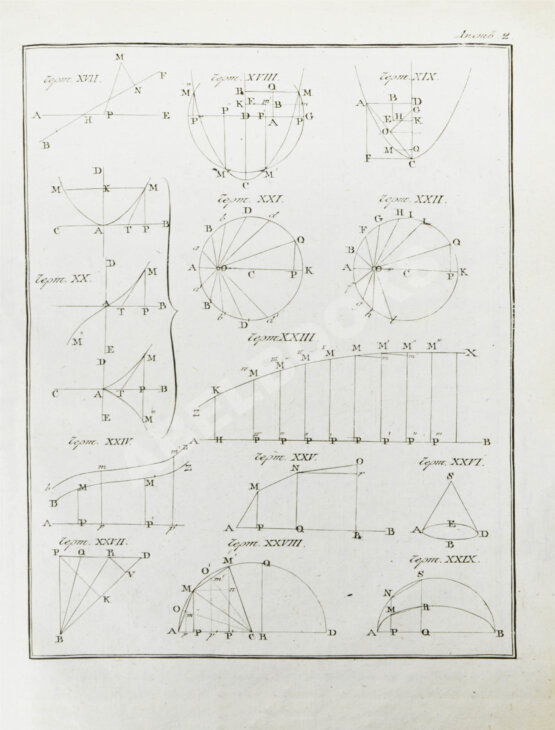 Листъ 2
Черт. XVII.
Черт. XVIII.
Черт. XIX.
M
F
N
A H P E
B
M" B Q M
K E m' B
P" P' D F A P G
M' M'
C
A B D
G
E H K
O
M Q
F C
D
M K M
C A T P B
Черт. XX.
D
M
A T P B
M"
E
D
M
C A T P B
E M"
Черт. XXI.
D
b d
B
a Q
A C P K
a
B'
b D' d'
Черт. XXII.
G H I L
F
B Q
A C P K
f
g h i
Черт. XXIII.
M M M M M M M' M" M"' X
K
Z
A H P P P P P P P P P B
Черт. XXIV.
m m' z'
b Z
B M M'
A P p P' p'
Черт. XXV.
N O
M r
A P Q R B
Черт. XXVI.
S
E
A D
B
Черт. XXVII.
P Q R D
V
K
B
Черт. XXVIII.
O' M' Q
M m'
O n
A P p P' C B D
Черт. XXIX.
S
N
M R
A P Q B